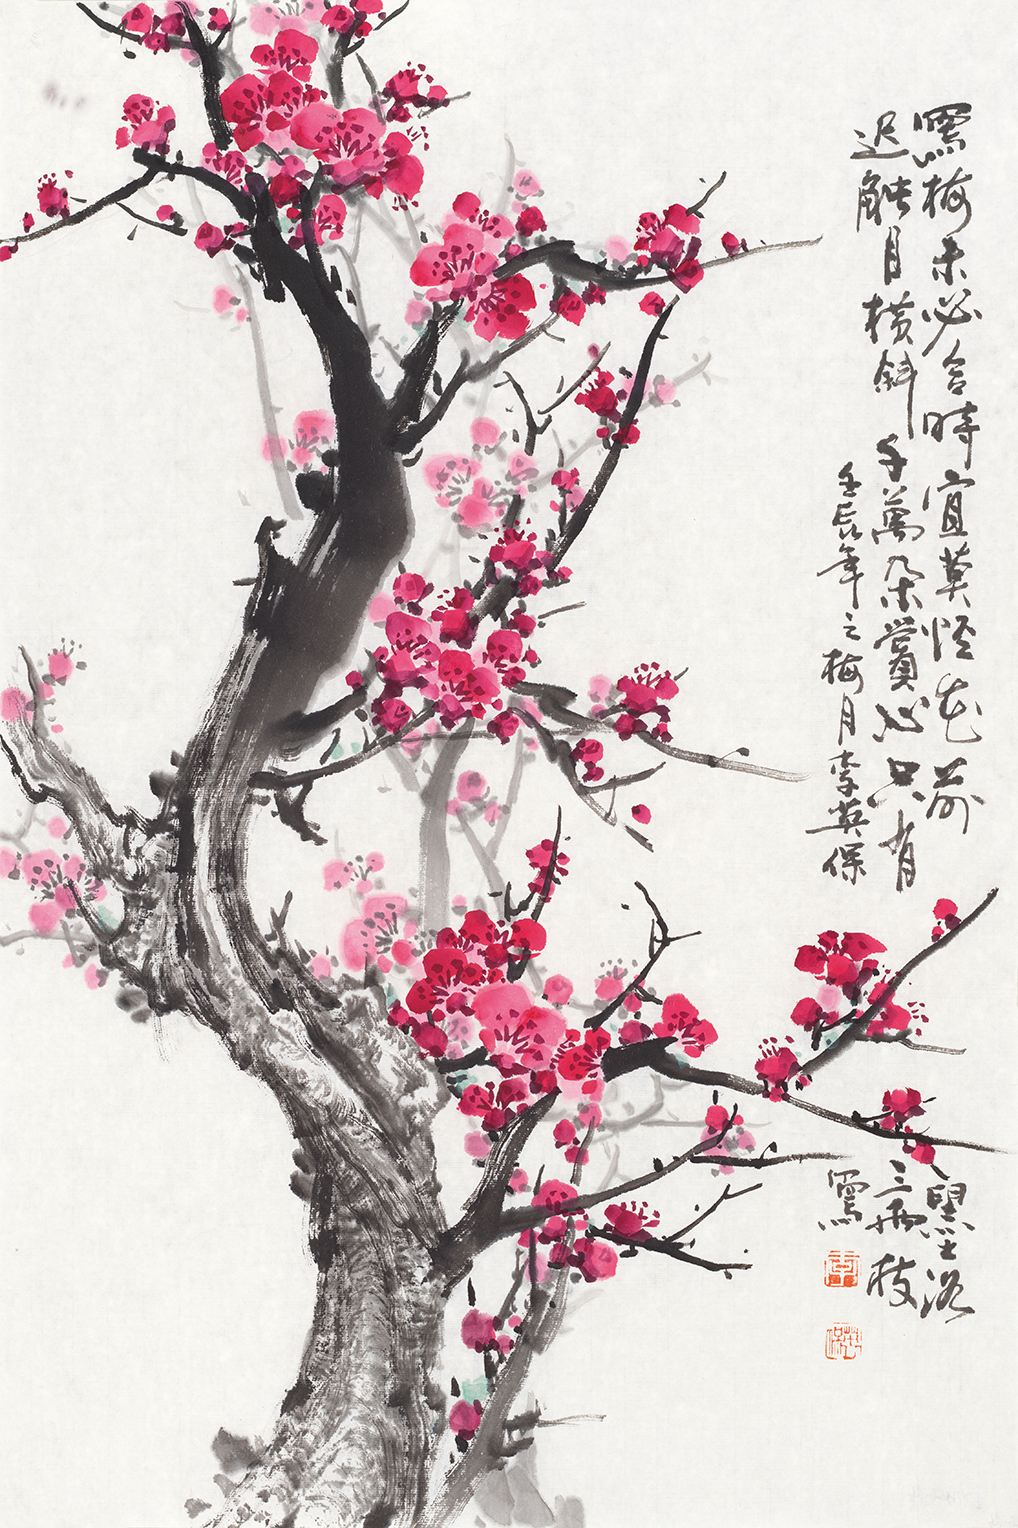 寫梅未必合時宜莫怪花前墨落
迟触目横斜千萬朵賞心只有三兩枝
壬辰年之梅月李英保寫